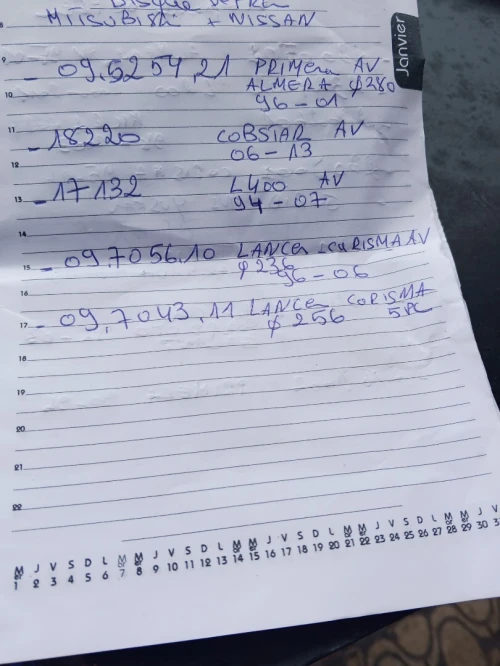 Disque
8 MITSUBISHI + NISSAN
Janvier
9 - 09.5254.21 PRIMERA AV
10 ALMERA φ280
96 - 01
11 - 18220 COBSTAR AV
12 06 - 13
13 - 17132 L400 AV
94 - 07
14
15 - 09.7056.10 LANCER - CURISMA AV
φ 236
16 96 - 06
17 - 09.7043.11 LANCER CORISMA
φ 256 5PC
18
19
20
21
22
M J V S D L M M J V S D L M M J V S D L M M J V S D L M M J V
1 2 3 4 5 6 7 8 9 10 11 12 13 14 15 16 17 18 19 20 21 22 23 24 25 26 27 28 29 30 3